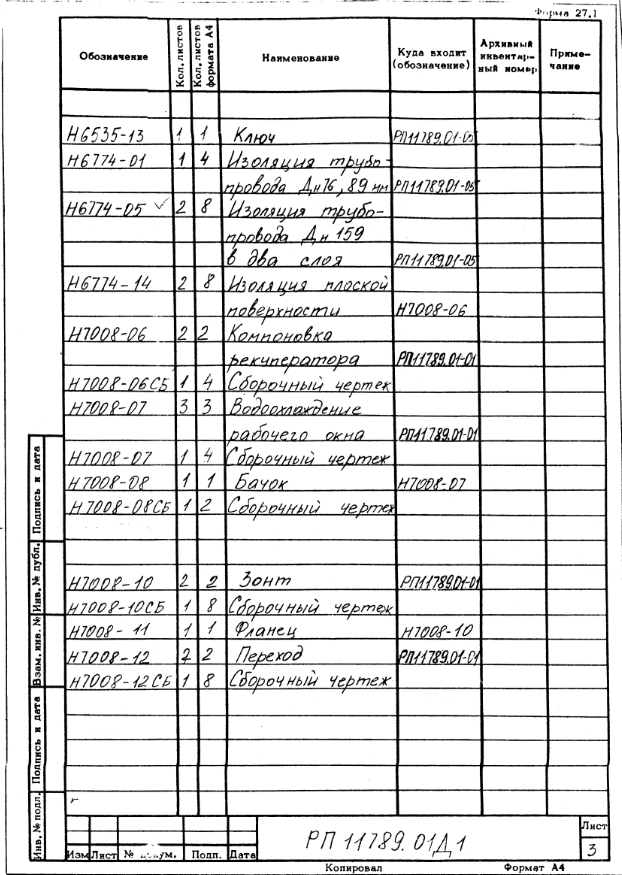 Форма 27.1
Обозначение Кол. листов Кол. листов формата А4 Наименование Куда входит (обозначение) Архивный инвентарный номер Примечание
Н6535-13 1 1 Ключ РП11789.01-05
Н6774-01 1 4 Изоляция трубо-
провода Дн76, 89 мм РП11789.01-05
Н6774-05 2 8 Изоляция трубо-
провода Дн 159
в два слоя РП11789.01-05
Н6774-14 2 8 Изоляция плоской
поверхности Н7008-06
Н7008-06 2 2 Компоновка
рекуператора РП11789.01-01
Н7008-06СБ 1 4 Сборочный чертеж
Н7008-07 3 3 Водоохлаждение
рабочего окна РП11789.01-01
Н7008-07 1 4 Сборочный чертеж
Н7008-08 1 1 Бачок Н7008-07
Н7008-08СБ 1 2 Сборочный чертеж
Н7008-10 2 2 Зонт РП11789.01-01
Н7008-10СБ 1 8 Сборочный чертеж
Н7008-11 1 1 Фланец Н7008-10
Н7008-12 2 2 Переход РП11789.01-01
Н7008-12СБ 1 8 Сборочный чертеж
Подпись и дата
Инв. № дубл.
Взам. инв. №
Подпись и дата
Инв. № подл.
Изм Лист № докум. Подп. Дата
РП 11789.01Д1
Лист
3
Копировал Формат А4